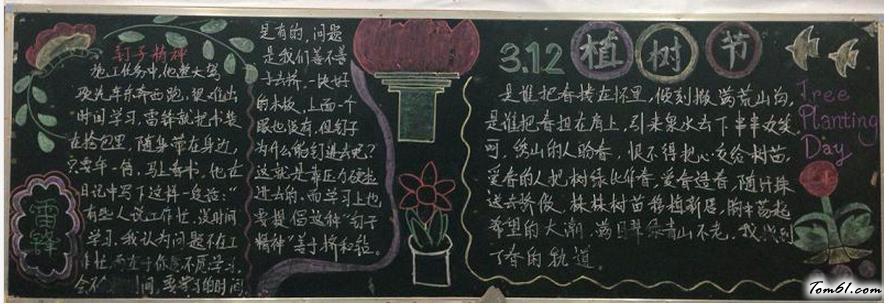 钉子精神
施工任务中，他整天驾
驶汽车东奔西跑，很难出
时间学习，雷锋就把书装
在挎包里，随身带在身边，
只要车一停，马上看书，他在
日记中写了这样一段话："
有些人说工作忙，没时间
学习，我认为问题不在工
作忙，而在于你愿不愿学习，
会不 间，要学习的时间
雷锋
是有的，问题
是我们善不善
于去挤，一块好
的木板，上面一个
眼也没有，但钉子
为什么能钉进去呢？
这就是靠压力硬挤
进去的，而学习上也
要提倡这种"钉子
精神"善于挤和钻。
3.12 植树节
是谁把春搂在怀里，倾刻搬满荒山沟，
是谁把春担在肩上，引来泉水去下串串欢笑，
呵，绣山的人盼春，恨不得把心交给树苗，
爱春的人把树绿比伴春，爱春造春，随汗珠
送去骄傲，株株树苗移植新居，胸中荡起
希望的大潮，满目翠绿青山不老，我找到
了春的轨道。
Tree
Planting
Day
Tom61.com